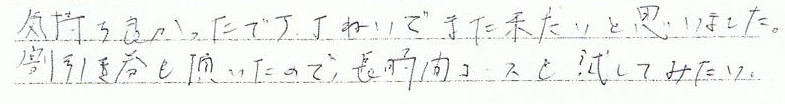 気持ち良かったですていねいでまた来たいと思いました。
割引き券も頂いたので、長時間コースも試してみたい。